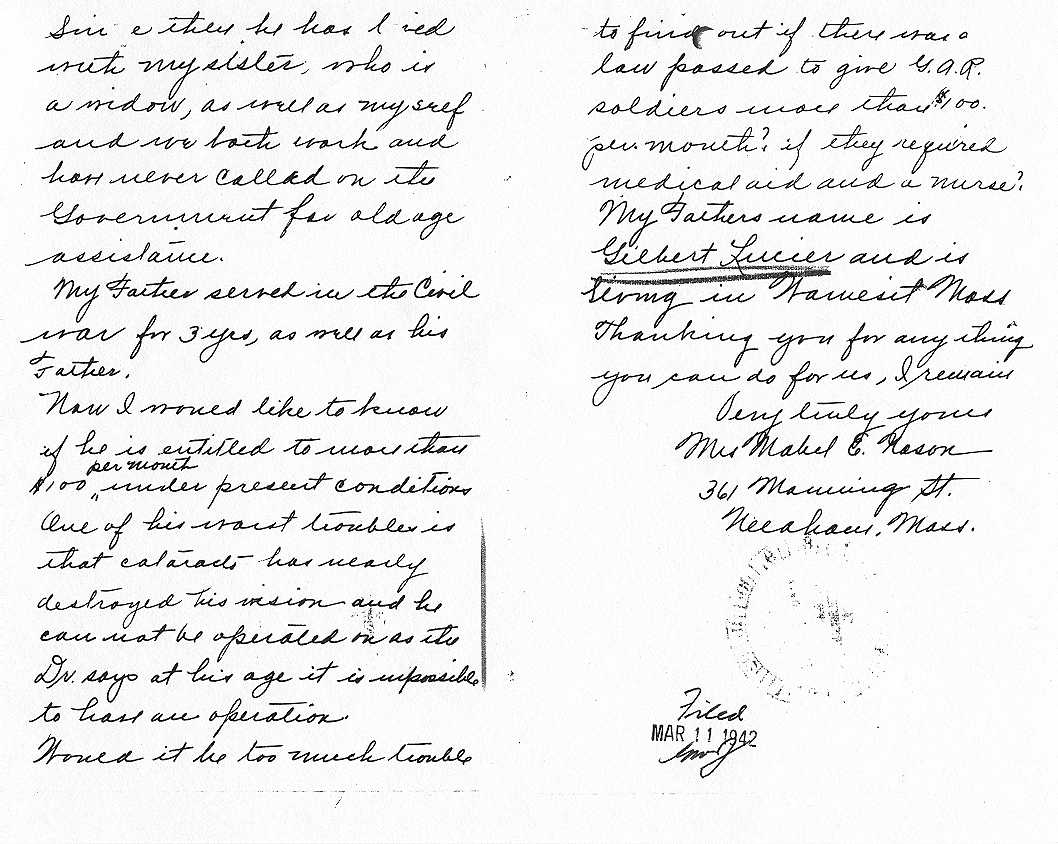 Since then he has lived
with my sister, who is
a widow, as well as myself
and we both work and
have never called on the
Government for old age
assistance.
My Father served in the Civil
war for 3 yrs, as well as his
Father.
Now I would like to know
if he is entitled to more than
per month
$100 " under present conditions
One of his worst troubles is
that cataracts has nearly
destroyed his vision and he
can not be operated on as the
Dr. says at his age it is impossible
to have an operation.
Would it be too much trouble
to find out if there was a
law passed to give G.A.R.
soldiers more than $100.
per month? if they required
medical aid and a nurse?
My Fathers name is
Gilbert Lucier and is
living in Wamesit Mass
Thanking you for any thing
you can do for us, I remain
Very truly yours
Mrs Mabel E. Nason
361 Manning St.
Needham, Mass.
Filed
MAR 11 1942